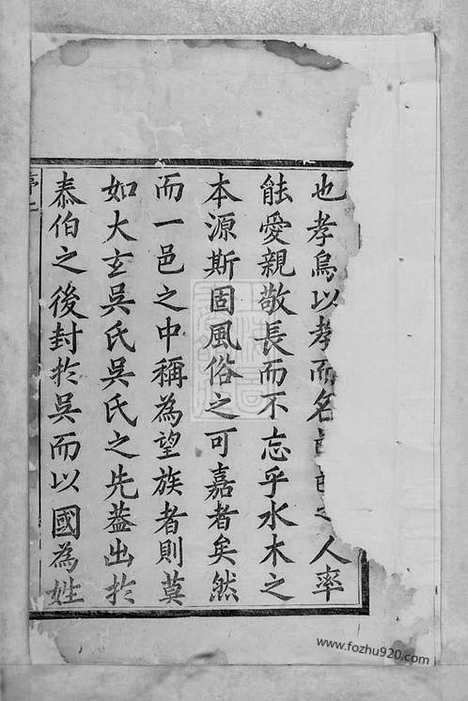 也孝烏以孝而名邑邑之人率
能愛親敬長而不忘乎水木之
本源斯固風俗之可嘉者矣然
而一邑之中稱為望族者則莫
如大玄吳氏吳氏之先蓋出於
泰伯之後封於吳而以國為姓
www.fozhu920.com